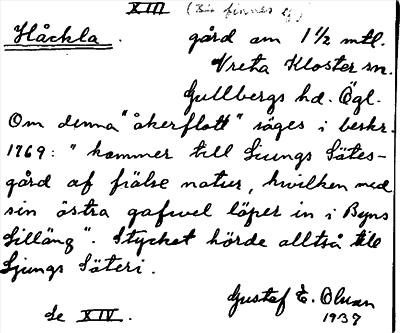 XIII (Bis finnes ej)
Håckla. gård om 1 1/2 mtl.
Vreta Kloster sn.
Gullbergs hd. Ögl.
Om denna "åkerflott" säges i beskr.
1769: "kommer till Ljungs Sätes-
gård af frälse natur, hvilken med
sin östra gafvel löper in i Byns
Lilläng". Stycket hörde alltså till
Ljungs Säteri.
Gustaf E. Olsson
Se XIV. 1937